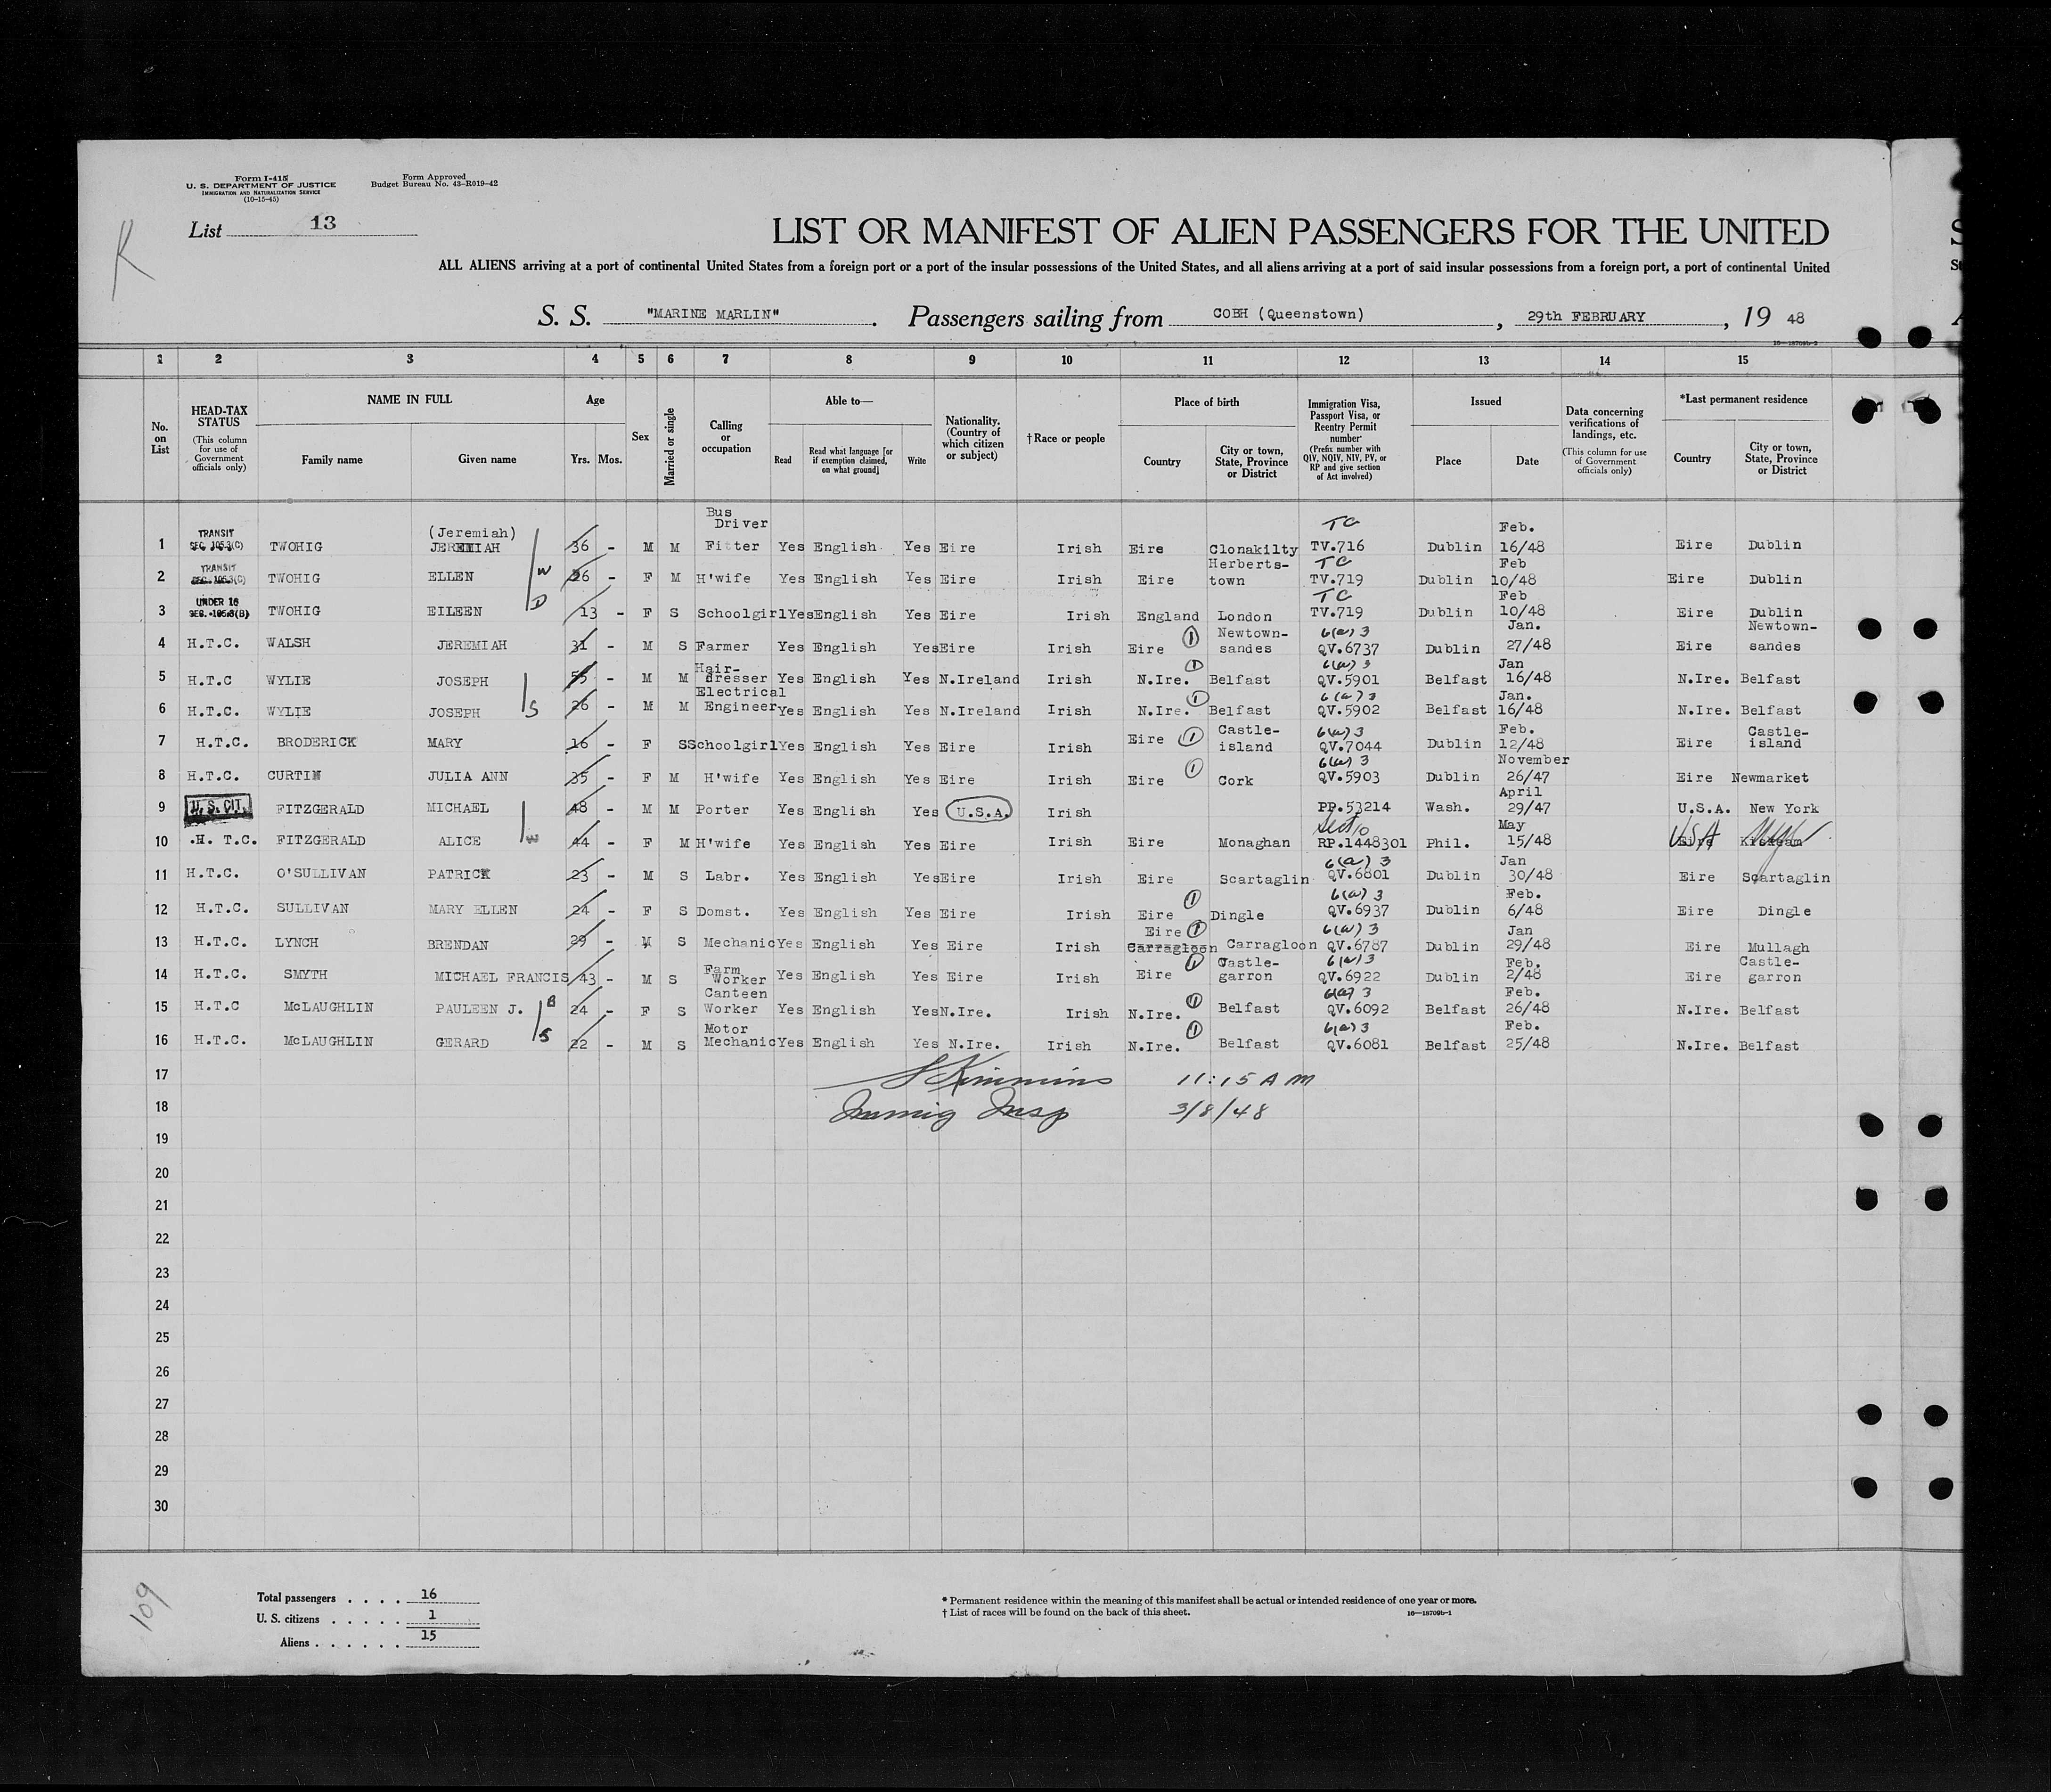 Form I-415
U. S. DEPARTMENT OF JUSTICE
IMMIGRATION AND NATURALIZATION SERVICE
(10-15-45)
Form Approved
Budget Bureau No. 43-R019-42
K
List 13
LIST OR MANIFEST OF ALIEN PASSENGERS FOR THE UNITED
S
ALL ALIENS arriving at a port of continental United States from a foreign port or a port of the insular possessions of the United States, and all aliens arriving at a port of said insular possessions from a foreign port, a port of continental United
St
S. S. "MARINE MARLIN" . Passengers sailing from COBH (Queenstown) , 29th FEBRUARY , 19 48
16—18709b-2
1 2 3 4 5 6 7 8 9 10 11 12 13 14 15
No. on List
HEAD-TAX STATUS (This column for use of Government officials only)
NAME IN FULL Family name Given name
Age Yrs. Mos.
Sex
Married or single
Calling or occupation
Able to— Read Read what language [or if exemption claimed, on what ground] Write
Nationality. (Country of which citizen or subject)
†Race or people
Place of birth Country City or town, State, Province or District
Immigration Visa, Passport Visa, or Reentry Permit number (Prefix number with QIV, NQIV, NIV, PV, or RP and give section of Act involved)
Issued Place Date
Data concerning verifications of landings, etc. (This column for use of Government officials only)
*Last permanent residence Country City or town, State, Province or District
1 TRANSIT SEC. 105.3(C) TWOHIG (Jeremiah) JEREMIAH 36 - M M Bus Driver Fitter Yes English Yes Eire Irish Eire Clonakilty TC TV.716 Dublin Feb. 16/48 Eire Dublin
2 TRANSIT SEC. 105.3(C) TWOHIG ELLEN W 26 - F M H'wife Yes English Yes Eire Irish Eire Herberts-town TC TV.719 Dublin Feb 10/48 Eire Dublin
3 UNDER 16 SEC. 105.3(B) TWOHIG EILEEN D 13 - F S Schoolgirl Yes English Yes Eire Irish England London TC TV.719 Dublin Feb 10/48 Eire Dublin
4 H.T.C. WALSH JEREMIAH 31 - M S Farmer Yes English Yes Eire Irish Eire 1 Newtown-sandes 6(a) 3 QV.6737 Dublin Jan. 27/48 Eire Newtown-sandes
5 H.T.C WYLIE JOSEPH 55 - M M Hair-dresser Yes English Yes N.Ireland Irish N.Ire. 1 Belfast 6(a) 3 QV.5901 Belfast Jan 16/48 N.Ire. Belfast
6 H.T.C. WYLIE JOSEPH S 26 - M M Electrical Engineer Yes English Yes N.Ireland Irish N.Ire. 1 Belfast 6(a) 3 QV.5902 Belfast Jan. 16/48 N.Ire. Belfast
7 H.T.C. BRODERICK MARY 16 - F S Schoolgirl Yes English Yes Eire Irish Eire 1 Castle-island 6(a) 3 QV.7044 Dublin Feb. 12/48 Eire Castle-island
8 H.T.C. CURTIN JULIA ANN 35 - F M H'wife Yes English Yes Eire Irish Eire 1 Cork 6(a) 3 QV.5903 Dublin November 26/47 Eire Newmarket
9 U.S. CIT. FITZGERALD MICHAEL 48 - M M Porter Yes English Yes U.S.A. Irish PP.53214 Wash. April 29/47 U.S.A. New York
10 .H. T.C. FITZGERALD ALICE W 44 - F M H'wife Yes English Yes Eire Irish Eire Monaghan Sect 10 RP.1448301 Phil. May 15/48 USA Eire
11 H.T.C. O'SULLIVAN PATRICK 23 - M S Labr. Yes English Yes Eire Irish Eire Scartaglin 6(a) 3 QV.6801 Dublin Jan 30/48 Eire Scartaglin
12 H.T.C. SULLIVAN MARY ELLEN 24 - F S Domst. Yes English Yes Eire Irish Eire 1 Dingle 6(a) 3 QV.6937 Dublin Feb. 6/48 Eire Dingle
13 H.T.C. LYNCH BRENDAN 29 - M S Mechanic Yes English Yes Eire Irish Eire 1 Carragloon Carragloon 6(a) 3 QV.6787 Dublin Jan 29/48 Eire Mullagh
14 H.T.C. SMYTH MICHAEL FRANCIS 43 - M S Farm Worker Yes English Yes Eire Irish Eire 1 Castle-garron 6(a) 3 QV.6922 Dublin Feb. 2/48 Eire Castle-garron
15 H.T.C McLAUGHLIN PAULEEN J. B 24 - F S Canteen Worker Yes English Yes N.Ire. Irish N.Ire. 1 Belfast 6(a) 3 QV.6092 Belfast Feb. 26/48 N.Ire. Belfast
16 H.T.C. McLAUGHLIN GERARD S 22 - M S Motor Mechanic Yes English Yes N.Ire. Irish N.Ire. 1 Belfast 6(a) 3 QV.6081 Belfast Feb. 25/48 N.Ire. Belfast
17 Kimmins 11:15 A M
18 Immig Insp 3/8/48
19
20
21
22
23
24
25
26
27
28
29
30
109
Total passengers . . . . 16
U. S. citizens . . . . . 1
Aliens . . . . . . 15
* Permanent residence within the meaning of this manifest shall be actual or intended residence of one year or more.
† List of races will be found on the back of this sheet.
16—18709b-1